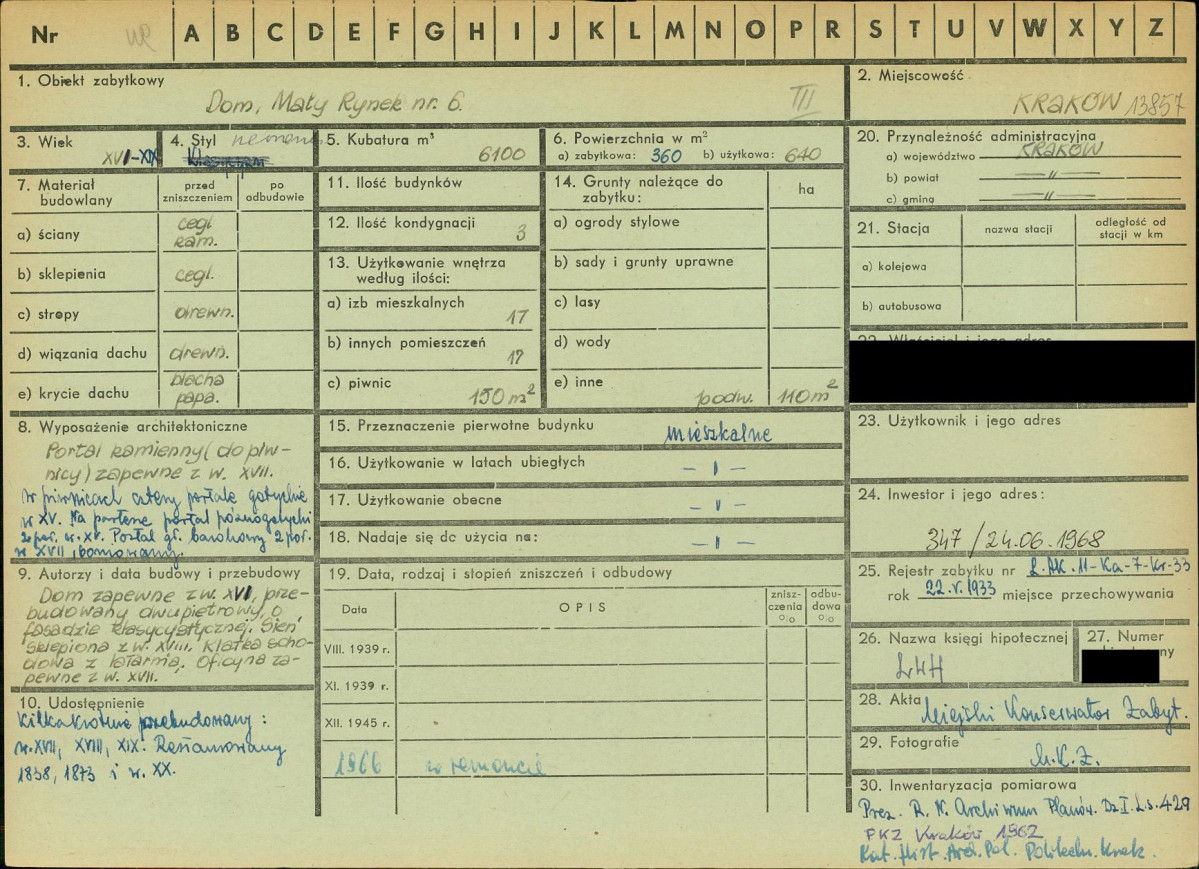 Nr A B C D E F G H I J K L M N O P R S T U V W X Y Z
1. Obiekt zabytkowy
Dom, Mały Rynek nr. 6. III
2. Miejscowość
KRAKÓW 13857
3. Wiek
XVI-XIX
4. Styl
5. Kubatura m³
6100
6. Powierzchnia w m²
a) zabytkowa: 360 b) użytkowa: 640
20. Przynależność administracyjna
a) województwo KRAKÓW
b) powiat —„—
c) gmina —„—
7. Materiał budowlany
przed zniszczeniem
po odbudowie
a) ściany cegl kam.
b) sklepienia cegl.
c) stropy drewn.
d) wiązania dachu drewn.
e) krycie dachu blacha papa.
11. Ilość budynków
12. Ilość kondygnacji 3
13. Użytkowanie wnętrza
według ilości:
a) izb mieszkalnych 17
b) innych pomieszczeń 17
c) piwnic 150 m²
14. Grunty należące do
zabytku:
ha
a) ogrody stylowe
b) sady i grunty uprawne
c) lasy
d) wody
e) inne podw. 110 m²
21. Stacja
nazwa stacji
odległość od
stacji w km
a) kolejowa
b) autobusowa
8. Wyposażenie architektoniczne
Portal kamienny (do piw-
nicy) zapewne z w. XVII.
w piwnicach cztery portale gotyckie
w XV. Na parterze portal późnogotycki
2 poł. w. XV. Portal gł. barokowy 2 poł.
w XVII, boniowany.
15. Przeznaczenie pierwotne budynku mieszkalne
16. Użytkowanie w latach ubiegłych – „ –
17. Użytkowanie obecne – „ –
18. Nadaje się do użycia na: – „ –
23. Użytkownik i jego adres
24. Inwestor i jego adres:
347/24.06.1968
25. Rejestr zabytku nr L.AK.11-Ka-7-Kr-33
rok 22.V.1933 miejsce przechowywania
9. Autorzy i data budowy i przebudowy
Dom zapewne z w. XVI, prze-
budowany dwupiętrowy, o
fasadzie klasycystycznej. Sień
sklepiona z w. XVIII. Klatka scho-
dowa z latarnią. Oficyna za-
pewne z w. XVII.
19. Data, rodzaj i stopień zniszczeń i odbudowy
Data
OPIS
znisz-
czenia
%
odbu-
dowa
%
VIII. 1939 r.
XI. 1939 r.
XII. 1945 r.
1966 w remoncie
26. Nazwa księgi hipotecznej
LWH
27. Numer
10. Udostępnienie
Kilkakrotnie przebudowany:
w. XVII, XVIII, XIX. Restaurowany
1838, 1873 i w. XX.
28. Akta
Miejski Konserwator Zabyt.
29. Fotografie
M.K.Z.
30. Inwentaryzacja pomiarowa
Prez. R. N. Archiwum Planów. Dz I. L.s. 429
PKZ Kraków 1962
Kat. Hist. Arch. Pol. Politechn. Krak.